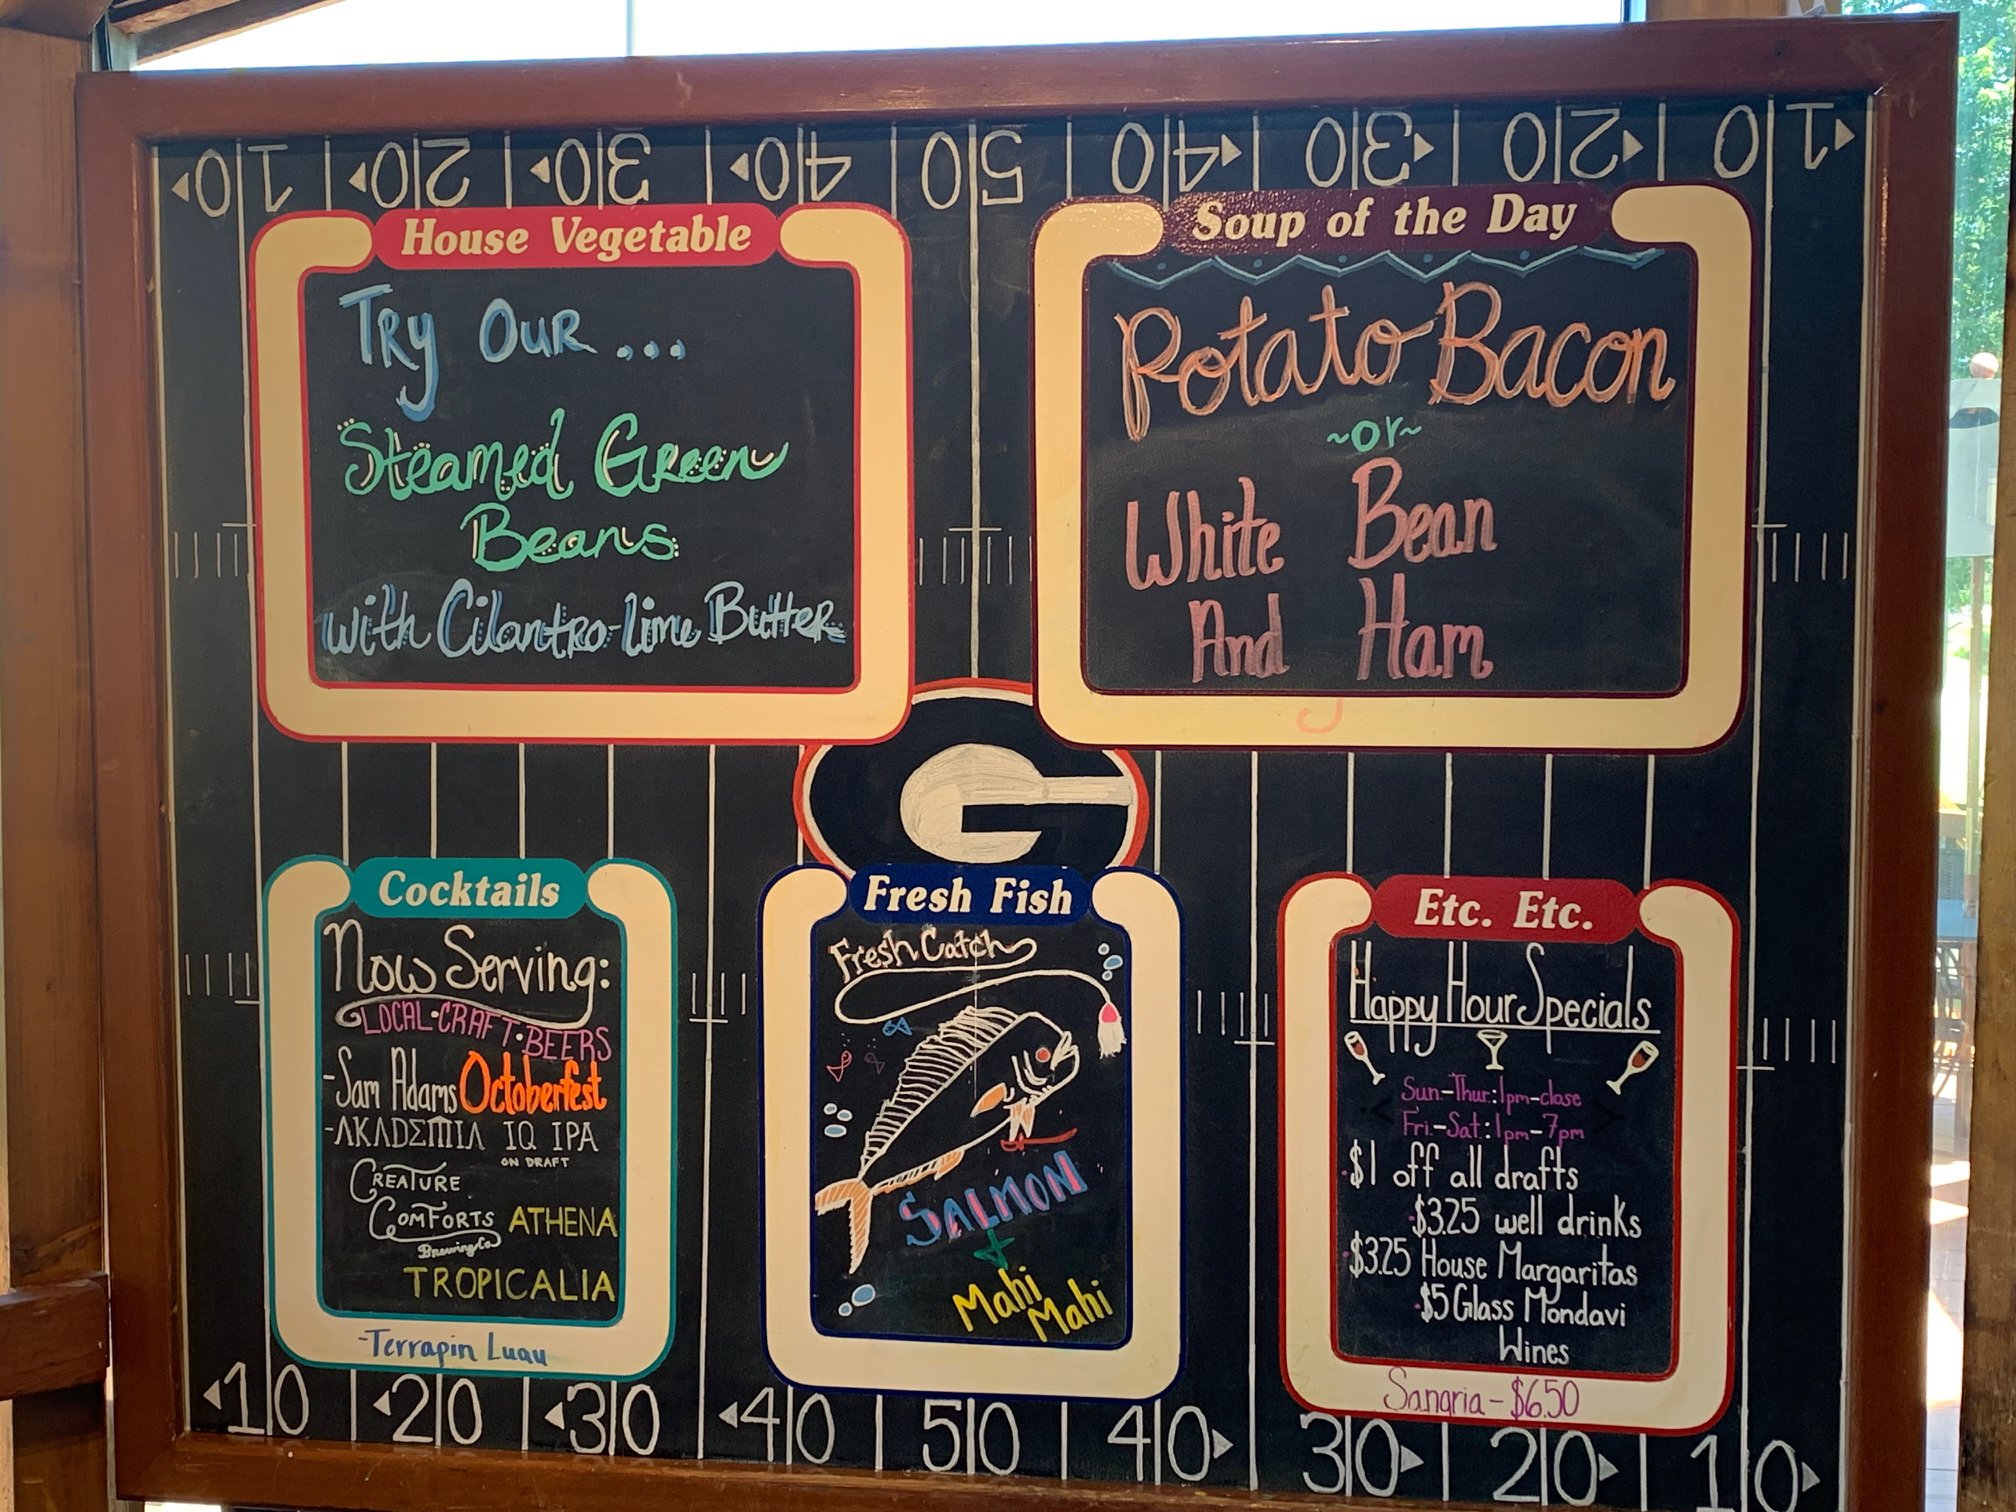 01 02 03 04 05 04 03 02 01
House Vegetable
Try Our ...
Steamed Green
Beans
with Cilantro-lime Butter
Soup of the Day
Potato Bacon
~or~
White Bean
And Ham
G
Cocktails
Now Serving:
LOCAL·CRAFT·BEERS
-Sam Adams Octoberfest
-AKADEMIA IQ IPA
ON DRAFT
CREATURE
COMFORTS ATHENA
Brewing Co
TROPICALIA
-Terrapin Luau
Fresh Fish
Fresh Catch
SALMON
+
Mahi
Mahi
Etc. Etc.
Happy Hour Specials
Sun-Thur:1pm-close
Fri.-Sat:1pm-7pm
$1 off all drafts
$3.25 well drinks
$3.25 House Margaritas
$5 Glass Mondavi
Wines
Sangria-$6.50
10 20 30 40 50 40 30 20 10